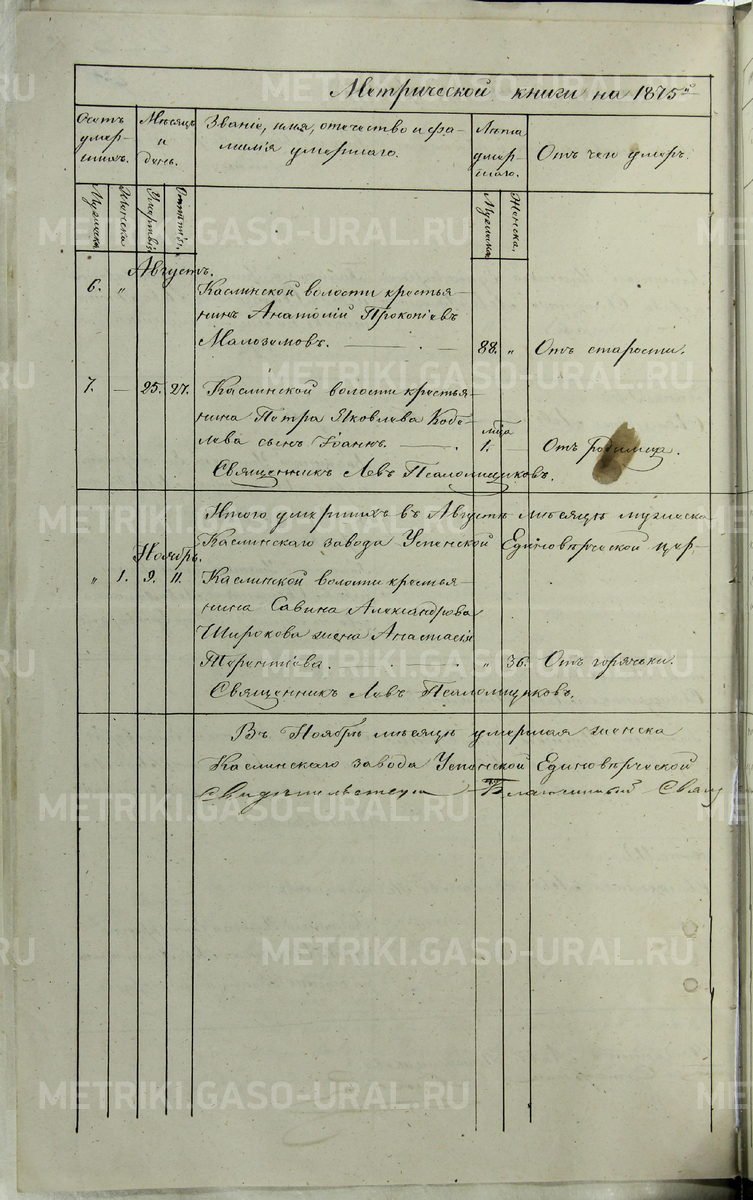 Метрической книги на 1875й
Счетъ умер-шихъ.
Мѣсяцъ и день.
Званіе, имя, отечество и фа-
милія умершаго.
Лѣта умер-шаго.
Отъ чего умеръ.
Мужеска
Женска
Умертвія
Отпѣтія.
Мужеска
Женска.
Августъ.
6. „ Каслинской волости крестья-
нинъ Анатолій Прокопіевъ
Малоземовъ. 88. „ Отъ старости.
7. — 25. 27. Каслинской волости крестья-
нина Петра Яковлева Кобе-
лева сынъ Іоаннъ. 1. мца — Отъ родимца.
Священникъ Левъ Псаломщиковъ.
Итого умершихъ въ Августѣ мѣсяцѣ мужеска
Каслинскаго завода Успенской Единовѣрческой цер-
Ноябрь.
„ 1. 9. 11. Каслинской волости крестья-
нина Савина Александрова
Широкова жена Анастасія
Терентіева. „ 36. Отъ горячки.
Священникъ Левъ Псаломщиковъ.
Въ Ноябрѣ мѣсяцѣ умершая женска
Каслинскаго завода Успенской Единовѣрческой
Свидѣтельствовалъ Благочинный Свящ
METRIKI.GASO-URAL.RU